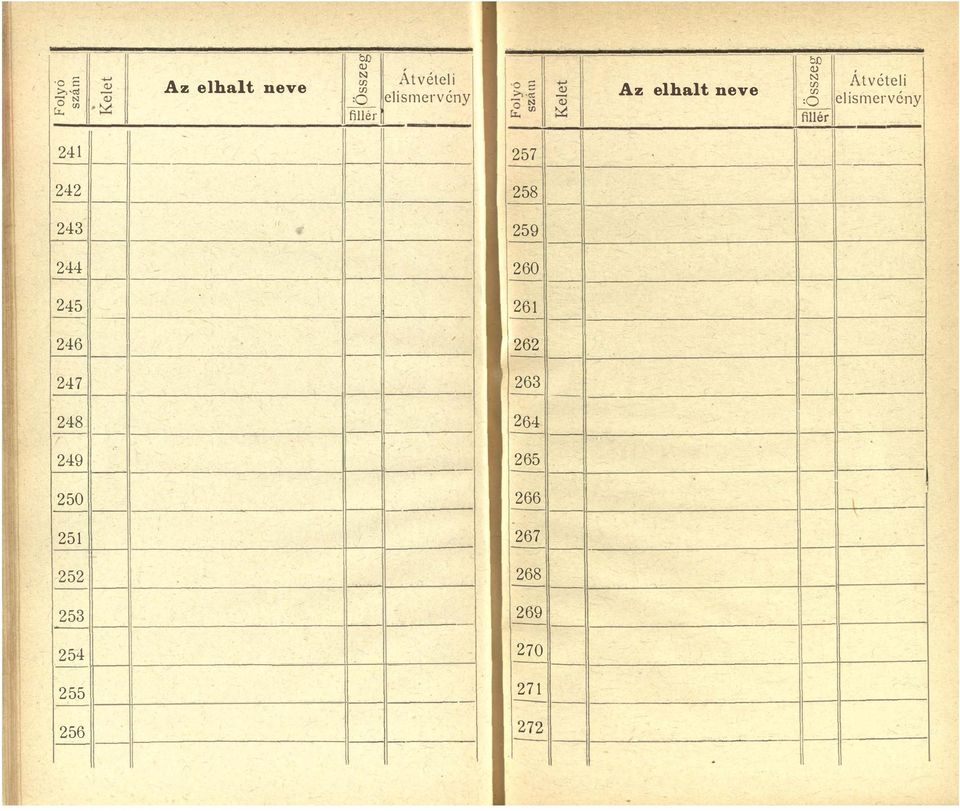 Folyó szám Kelet Az elhalt neve Összeg fillér Átvételi elismervény
241
242
243
244
245
246
247
248
249
250
251
252
253
254
255
256
Folyó szám Kelet Az elhalt neve Összeg fillér Átvételi elismervény
257
258
259
260
261
262
263
264
265
266
267
268
269
270
271
272